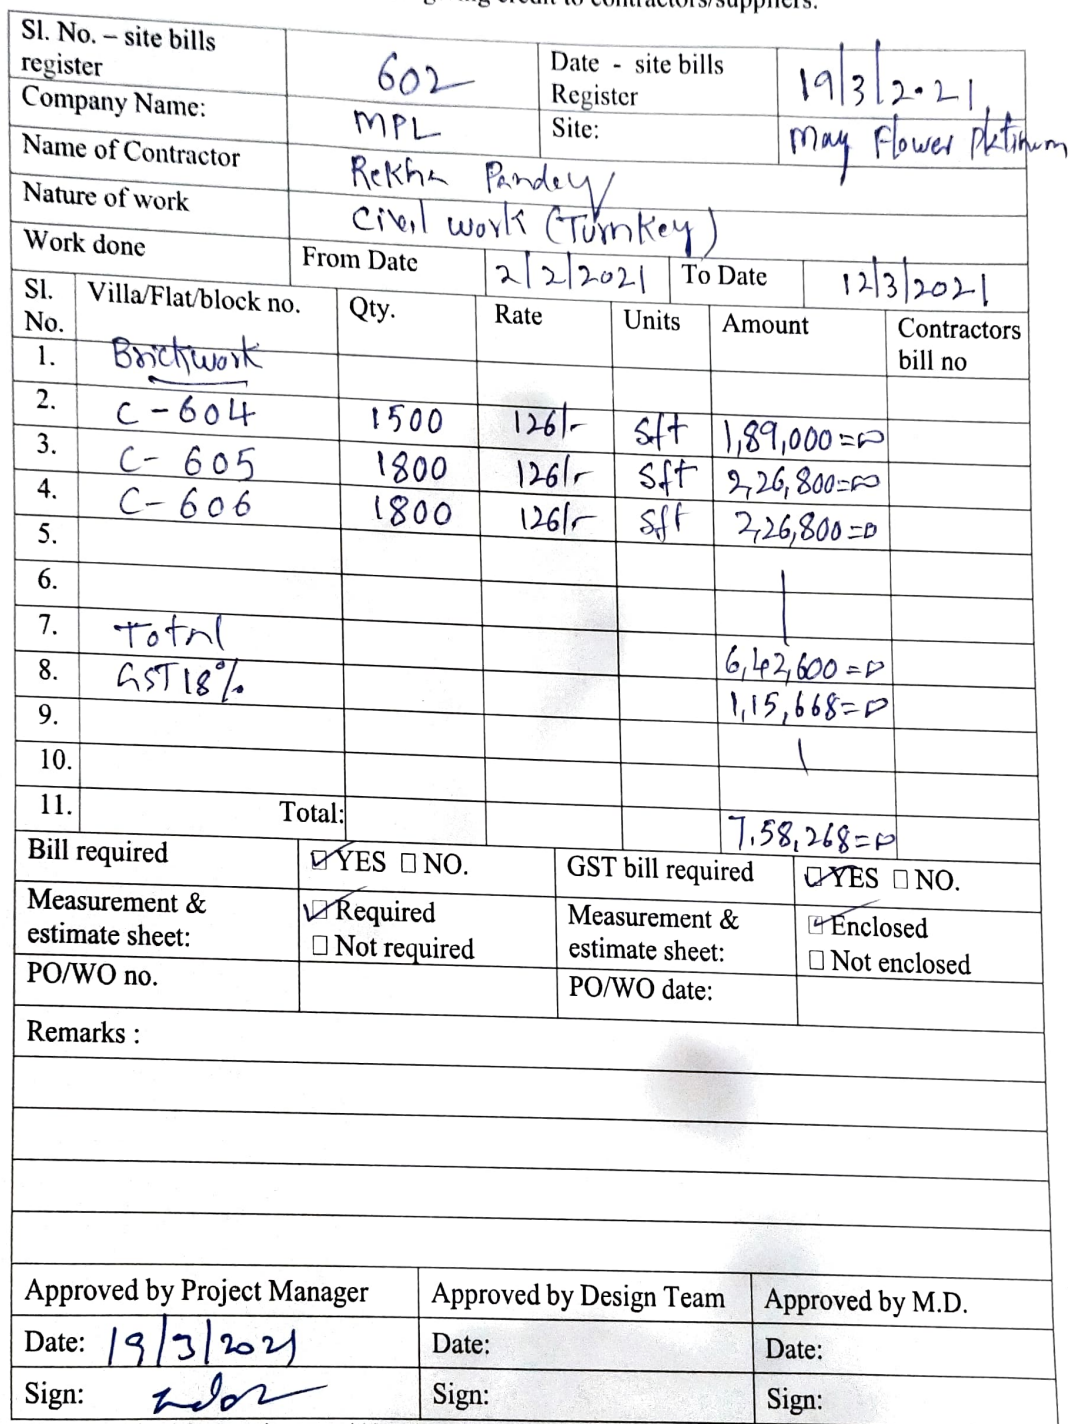 credit to contractors/suppliers.
Sl. No. – site bills register 602 Date - site bills Register 19/3/2021
Company Name: MPL Site: May Flower Platinum
Name of Contractor Rekha Pandey
Nature of work Civil work (Turnkey)
Work done From Date 2/2/2021 To Date 12/3/2021
Sl. No. Villa/Flat/block no. Qty. Rate Units Amount Contractors bill no
1. Brickwork
2. C-604 1500 126/- Sft 1,89,000=00
3. C-605 1800 126/- Sft 2,26,800=00
4. C-606 1800 126/- Sft 2,26,800=00
5.
6.
7. Total 6,42,600=00
8. GST 18% 1,15,668=00
9.
10.
11. Total: 7,58,268=00
Bill required ☑ YES ☐ NO. GST bill required ☑ YES ☐ NO.
Measurement & estimate sheet: ☑ Required ☐ Not required Measurement & estimate sheet: ☑ Enclosed ☐ Not enclosed
PO/WO no. PO/WO date:
Remarks :
Approved by Project Manager Approved by Design Team Approved by M.D.
Date: 19/3/2021 Date: Date:
Sign: Sign: Sign: